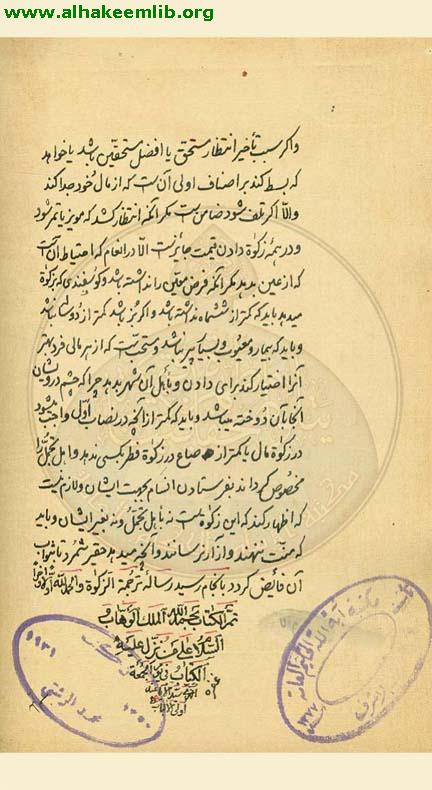 www.alhakeemlib.org
واکر سبب تأخیر انتظار مستحق یا افضل مستحقین باشد یا خواهد
که بسط کند بر اصناف اولی آن ست که از مال خود جدا کند
والا اکر تلف شود ضامن ست مکر آنکه انتظار کشد که مویز یا تمر شود
و در همه زکوة دادن قیمت جایز ست الا در انعام که احتیاط آن ست
که از عین بدهد مکر آنکه فرض معین را نداشته باشد و کوسفندی که بزکوة
میدهد باید که کمتر از ششماهه نداشته باشد واکر بز باشد کمتر از دو ساله نباشد
و باید که بیمار و معیوب و بسیار پیر نباشد و مستحب ست که از هر مالی فرد بهتر
آنرا اختیار کند برای دادن و باهل آن شهر بدهد چرا که چشم درویشان
آنجا بآن دوخته میباشد و باید که کمتر از آنچه در نصاب اول واجب میشود
در زکوة مال یا کمتر از صاع در زکوة فطر بکسی ندهد و اهل تجمل را
مخصوص کرداند بفرستادن انعام بجهت ایشان و لازم نیست
که اظهار کند که این زکوة ست نه باهل تجمل و نه بغیر ایشان و باید
که منت ننهند و آزار نرسانند و آنچه میدهد حقیر شمرد تا بثواب
آن فائض کردد بانجام رسید رساله ترجمة الزکوة والحمد لله اولا واخرا
تم الکتاب بحمد الله الملک الوهاب
السلام علی من نزل علیه
الکتاب فی